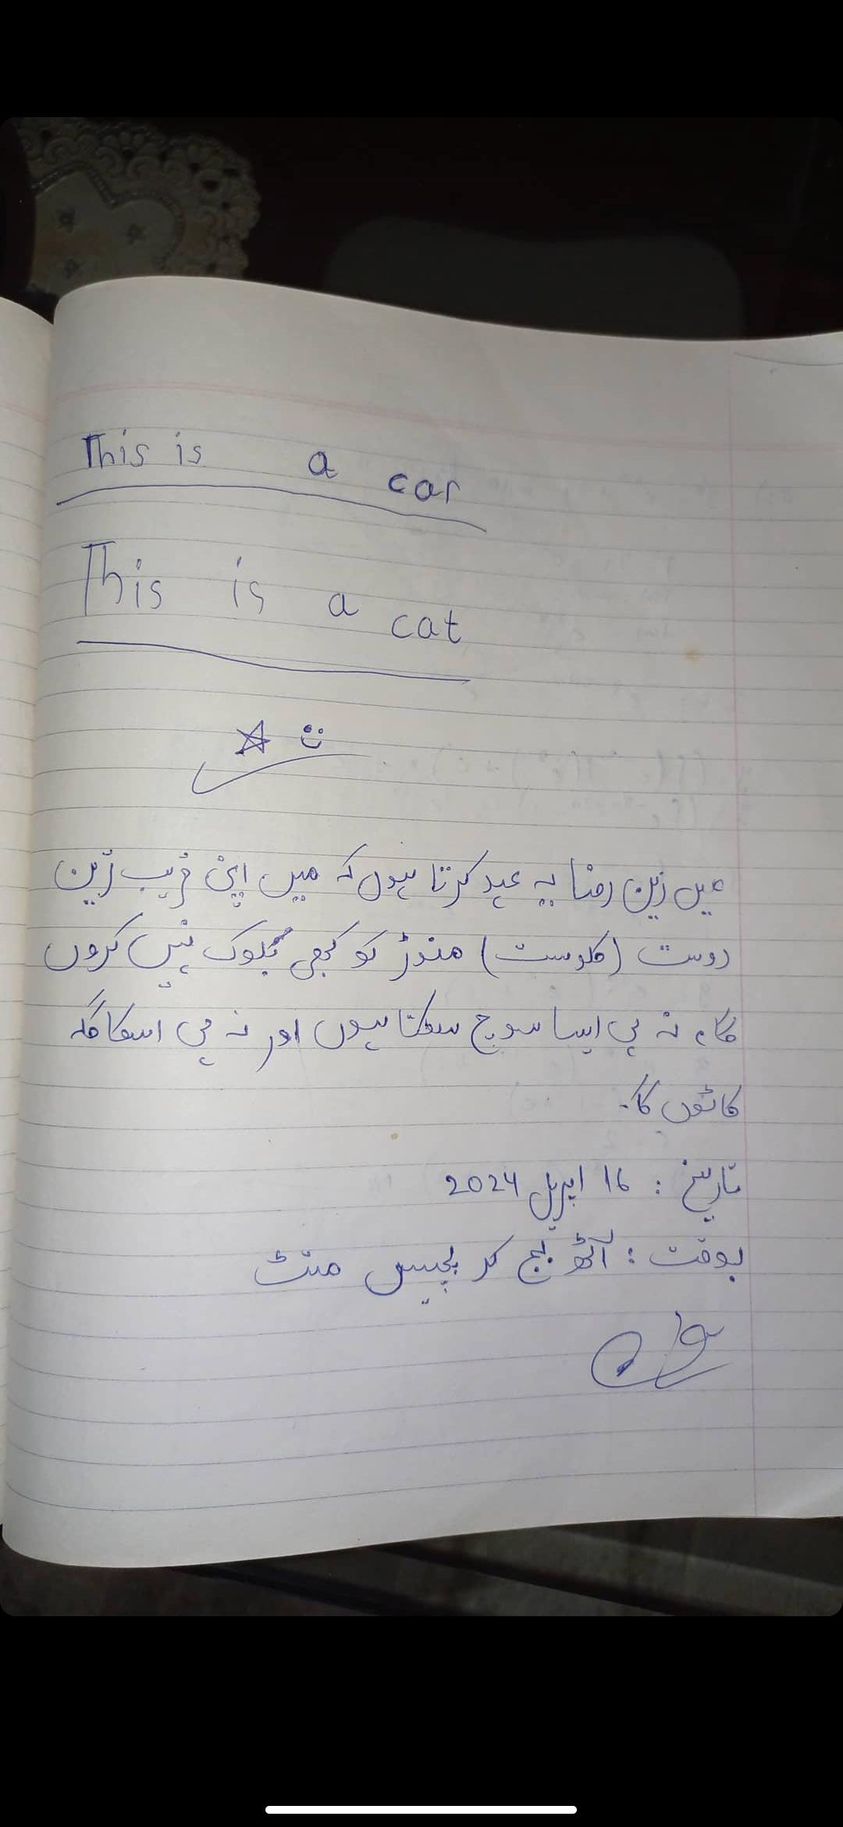 This is a car
This is a cat
میں زین رضا یہ عہد کرتا ہوں کہ میں اپنی قریب ترین
دوست (کلوسٹ) منوڑ کو کبھی بلوک نہیں کروں
گا، نہ ہی ایسا سوچ سکتا ہوں اور نہ ہی اسکا گلہ
کاٹوں گا۔
تاریخ : 16 اپریل 2024
بوقت : آٹھ بج کر پچیس منٹ